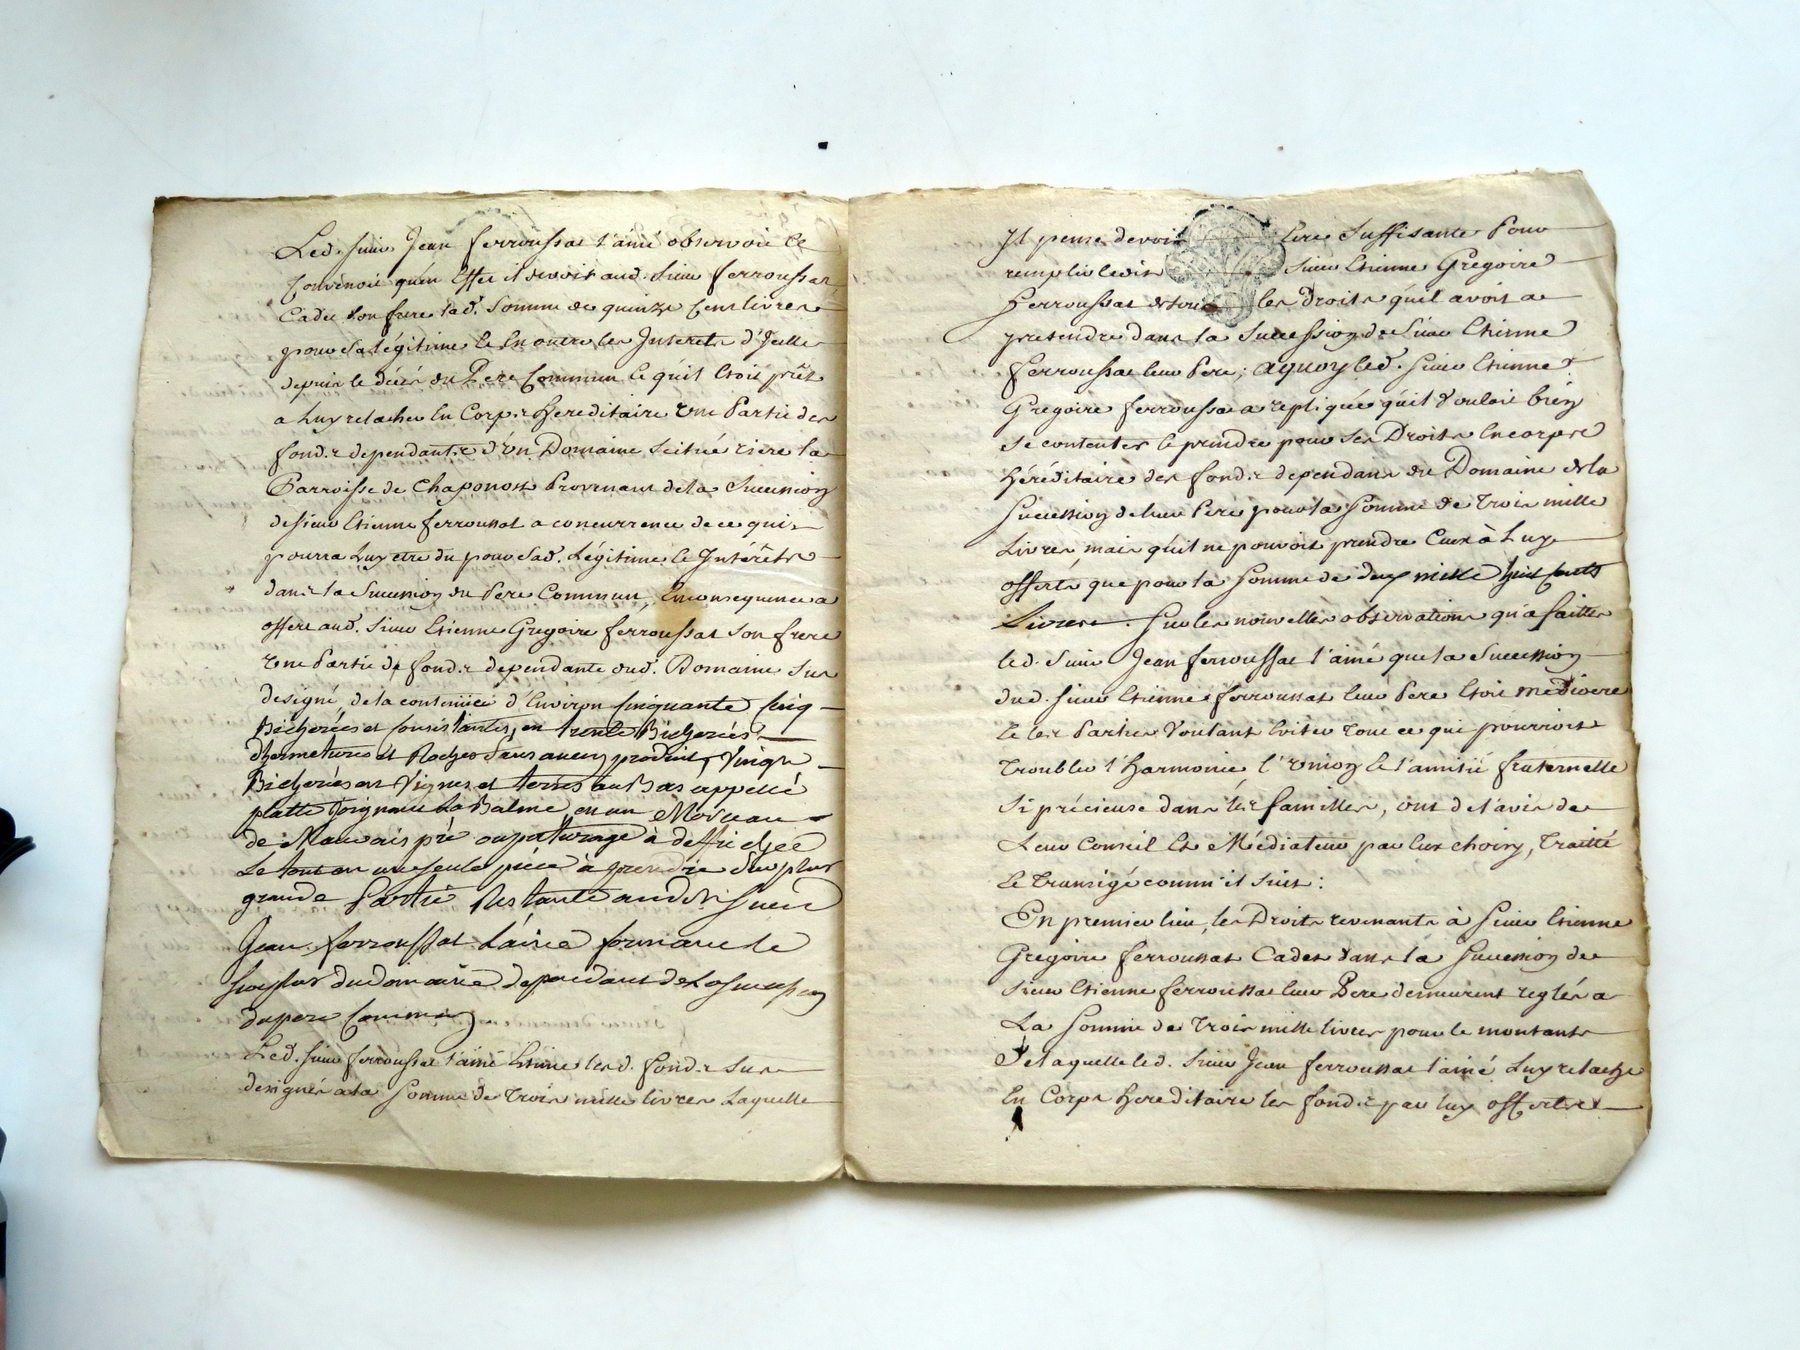 Led. Sieur Jean ferroussat l'ainé observoit et
Convenoit qu'en Effet il devoit aud. Sieur ferroussat
Cadet son frere lad. Somme de quinze Cent livres
pour Sa légitime et En outre les Interets d'Icelle
depuis le décés du Pere Commun et qu'il Etoit prêt
a Luy relacher En Corps Hereditaire Une Partie des
fonds dependants d'Un Domaine Scitué riere la
Parroisse de Chaponost Provenant de la Succession
de Sieur Etienne ferroussat a concurrence de ce qui
pourra Luy etre du pour Sad. Légitime et Intérêts
dans la Succession du Pere Commun, En consequence a
offert aud. Sieur Etienne Gregoire ferroussat Son frere
Une Partie de fonds dependante dud. Domaine Sus
designé, de la contenüe d'Environ Cinquante Cinq
Bicherées et Consistantes, en trente Bicherées
d'hermetures et Rochers Sans aucun produit, Vingt
Bicherées en Vignes et terres au Bas appellé
platte Joignant La Balme en un Morceau
de Mauvais pré ou paturage à deffricher
Le tout en une Seule piece à prendre Du plus
grande Partie Restante audit Sieur
Jean ferroussat L'ainé formant le
Surplus du domaine dependant de La Succession
du pere Commun
Led. Sieur ferroussat l'ainé Estime lesd. fonds Sus
designés a la Somme de Trois mille livres Laquelle
Il pense devoir Etre Suffisante Pour
remplir ledit Sieur Etienne Gregoire
Ferroussat de tous les Droits qu'il avoit a
pretendre dans la Succession de Sieur Etienne
Ferroussat leur Pere; a quoy led. Sieur Etienne
Gregoire ferroussat a repliqué qu'il Vouloit bien
Se contenter et prendre pour Ses Droits En corps
Héréditaire des fonds dependans du Domaine de la
Succession de leur Pere pour la Somme de Trois mille
Livres, mais qu'il ne pouvoit prendre Ceux à Luy
offerts que pour la Somme de deux mille huit cents
Livres. Sur les nouvelles observations qu'a faittes
led. Sieur Jean ferroussat l'ainé que la Succession
dud. Sieur Etienne ferroussat leur Pere Etoit médiocre
Et les Parties Voulant Eviter Tout ce qui pourroit
Troubler l'Harmonie l'Union et l'amitié fraternelle
Si précieuse dans les familles, ont de l'avis de
Leur Conseil Et Médiateur par Eux choisy, Traitté
Et Transigé comm'il Suit:
En premier lieu, les Droits revenants à Sieur Etienne
Gregoire ferroussat Cadet dans la Succession de
Sieur Etienne ferroussat leur Pere demeurent reglés a
La Somme de Trois mille livres pour le montant
De laquelle led. Sieur Jean ferroussat l'ainé Luy relache
En Corps Hereditaire les fonds par luy offerts